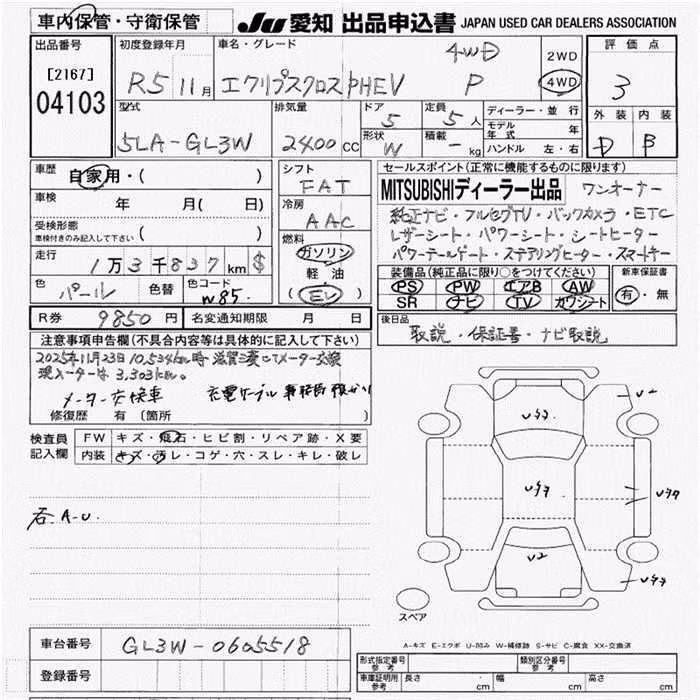 車内保管・守衛保管
JU 愛知 出品申込書 JAPAN USED CAR DEALERS ASSOCIATION
出品番号
[2167]
04103
初度登録年月
R5 11月
車名・グレード
4WD
エクリプスクロスPHEV P
2WD
4WD
評価点
3
外装 内装
D B
型式
5LA-GL3W
排気量
2400cc
ドア
5
定員
5人
形状
W
積載
- kg
ディーラー・並行
モデル年式 年
ハンドル 左・右
車歴
自家用・( )
車検
年 月( 日)
受検形態
車検付きのみ記入して下さい ( )
走行
1万3千837km $
色
パール
色替
色コード
W85.
シフト
FAT
冷房
AAC
燃料
ガソリン
軽油
(EV)
セールスポイント(正常に機能するものに限ります)
MITSUBISHIディーラー出品 ワンオーナー
純正ナビ・フルセグTV・バックカメラ・ETC
レザーシート・パワーシート・シートヒーター
パワーテールゲート・ステアリングヒーター・スマートキー
装備品(純正品に限り○をつけてください)
PS PW エアB AW
SR ナビ TV カワシート
新車保証書
有・無
R券 9850円
名変通知期限 月 日
後日品
取説・保証書・ナビ取説
注意事項申告欄(不具合内容等は具体的に記入して下さい)
2025年11月23日 10,534km時 滋賀三菱にてメーター交換
現メーターは 3,303km。
メーター交換車 充電ケーブル 事務所預かり
修復歴 有 (箇所 )
検査員記入欄
FW キズ・飛石・ヒビ割・リペア跡・X要
内装 キズ・汚レ・コゲ・穴・スレ・キレ・破レ
右 A-U.
スペア
A-キズ E-エクボ U-凹み W-補修跡 S-サビ C-腐食 XX-交換済
車台番号 GL3W-0605518
登録番号
形式指定番号 参考
類別区分番号 参考
車庫証明用 参考
長さ cm 幅 cm 高さ cm